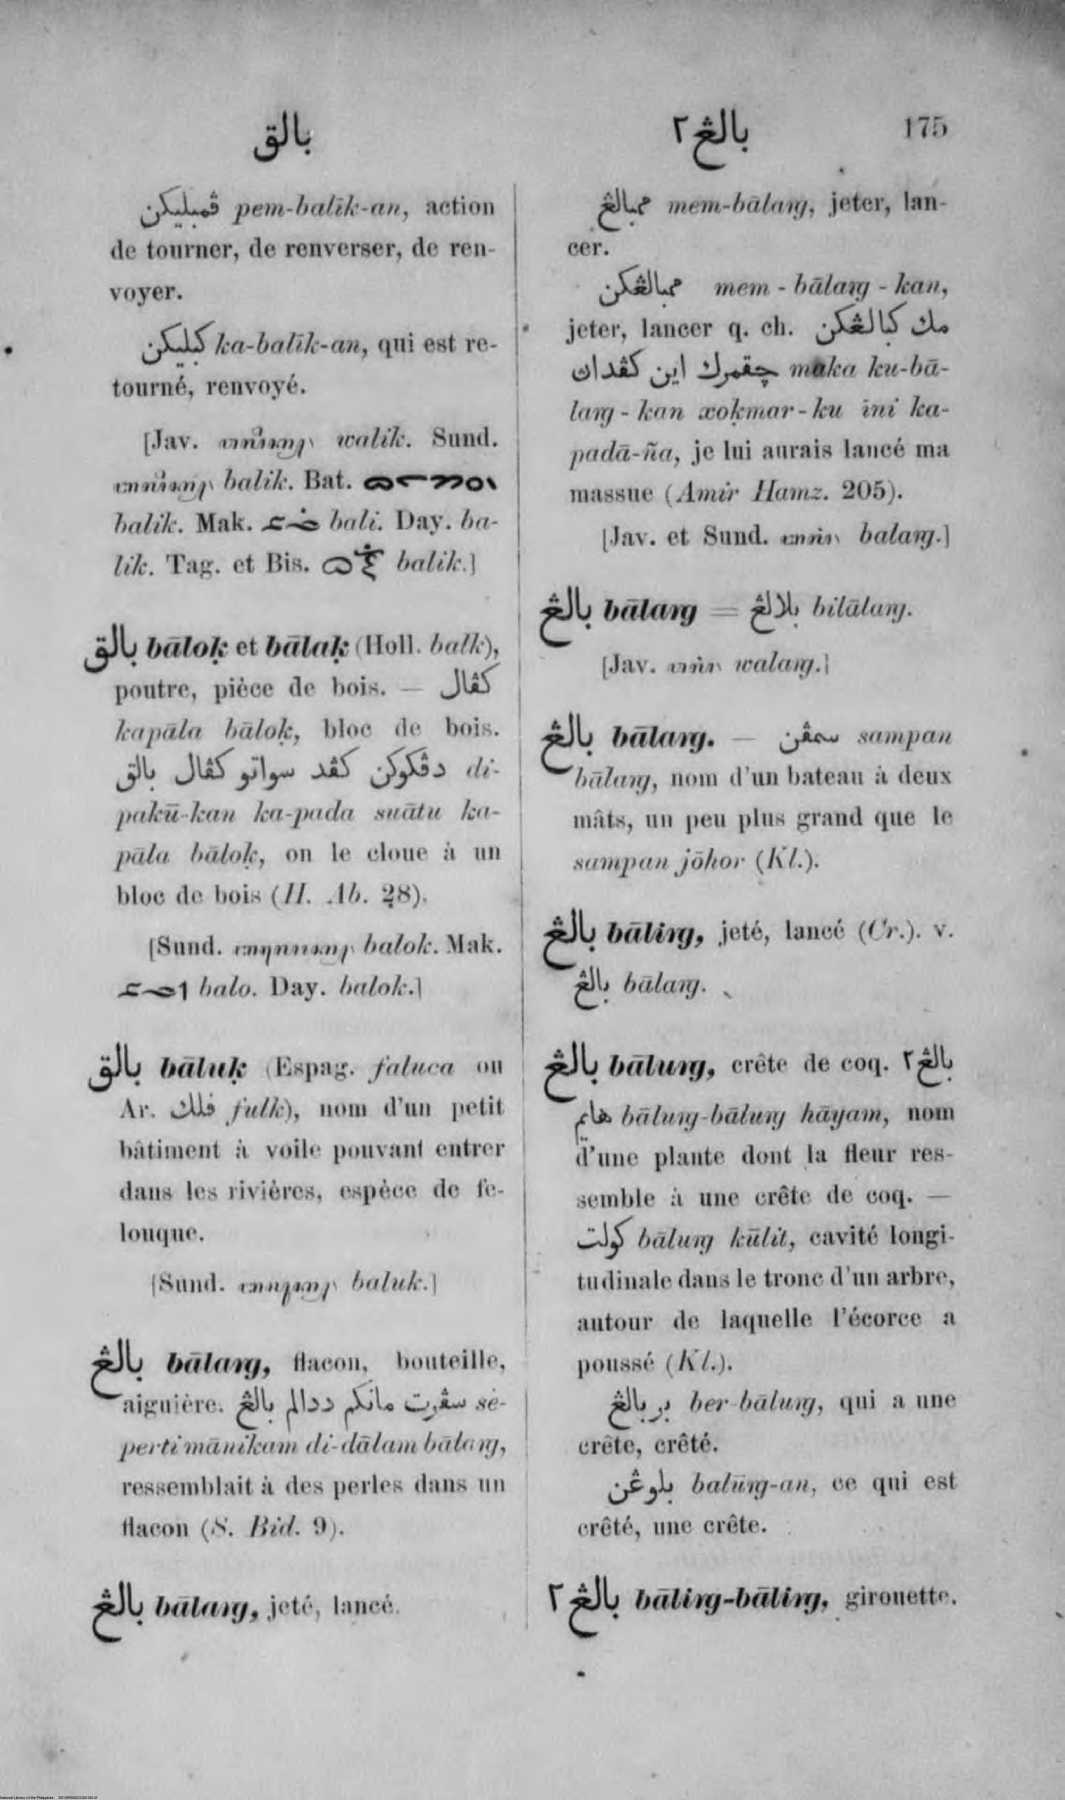 بالق
بالڠ ٢
175
ڤمبليكن pem-balīk-an, action
de tourner, de renverser, de ren-
voyer.
كبليكن ka-balīk-an, qui est re-
tourné, renvoyé.
[Jav. walik. Sund.
balik. Bat.
balik. Mak. bali. Day. ba-
lik. Tag. et Bis. balik.]
بالق bāloḳ et bālaḳ (Holl. balk),
poutre, pièce de bois. — كڤال
kapāla bāloḳ, bloc de bois.
دڤكوكن كڤد سواتو كڤال بالق di-
pakū-kan ka-pada suātu ka-
pāla bāloḳ, on le cloue à un
bloc de bois (H. Ab. 28).
[Sund. balok. Mak.
balo. Day. balok.]
بالق bāluḳ (Espag. faluca ou
Ar. فلك fulk), nom d'un petit
bâtiment à voile pouvant entrer
dans les rivières, espèce de fe-
louque.
[Sund. baluk.]
بالڠ bālaŋg, flacon, bouteille,
aiguière. سڤرت مانكم ددالم بالڠ sĕ-
perti mānikam di-dālam bālaŋg,
ressemblait à des perles dans un
flacon (S. Bid. 9).
بالڠ bālaŋg, jeté, lancé.
ممبالڠ mem-bālaŋg, jeter, lan-
cer.
ممبالڠكن mem - bālaŋg - kan,
jeter, lancer q. ch. مك كبالڠكن
چقمرك اين كڤدات maka ku-bā-
laŋg - kan xoḳmar - ku īni ka-
padā-ña, je lui aurais lancé ma
massue (Amir Hamz. 205).
[Jav. et Sund. balaŋg.]
بالڠ bālaŋg = بلالڠ bilālaŋg.
[Jav. walaŋg.]
بالڠ bālaŋg. — سمڤن sampan
bālaŋg, nom d'un bateau à deux
mâts, un peu plus grand que le
sampan jōhor (Kl.).
بالڠ bāliŋg, jeté, lancé (Cr.). v.
بالڠ bālaŋg.
بالڠ bāluŋg, crête de coq. بالڠ ٢
هايم bāluŋg-bāluŋg hāyam, nom
d'une plante dont la fleur res-
semble à une crête de coq. —
كولت bāluŋg kūlit, cavité longi-
tudinale dans le tronc d'un arbre,
autour de laquelle l'écorce a
poussé (Kl.).
بربالڠ ber-bāluŋg, qui a une
crête, crêté.
بلوڠن balūŋg-an, ce qui est
crêté, une crête.
بالڠ ٢ bāliŋg-bāliŋg, girouette.